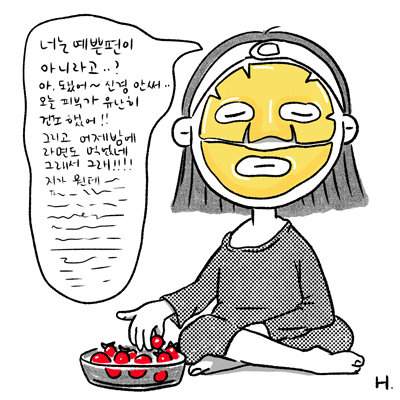 너는 예쁜편이
아니라고..?
아. 됐어~ 신경 안써..
오늘 피부가 유난히
건조했어!!
그리고 어제밤에
라면도 먹었네
그래서 그래!!!!
지가 뭔데
H.